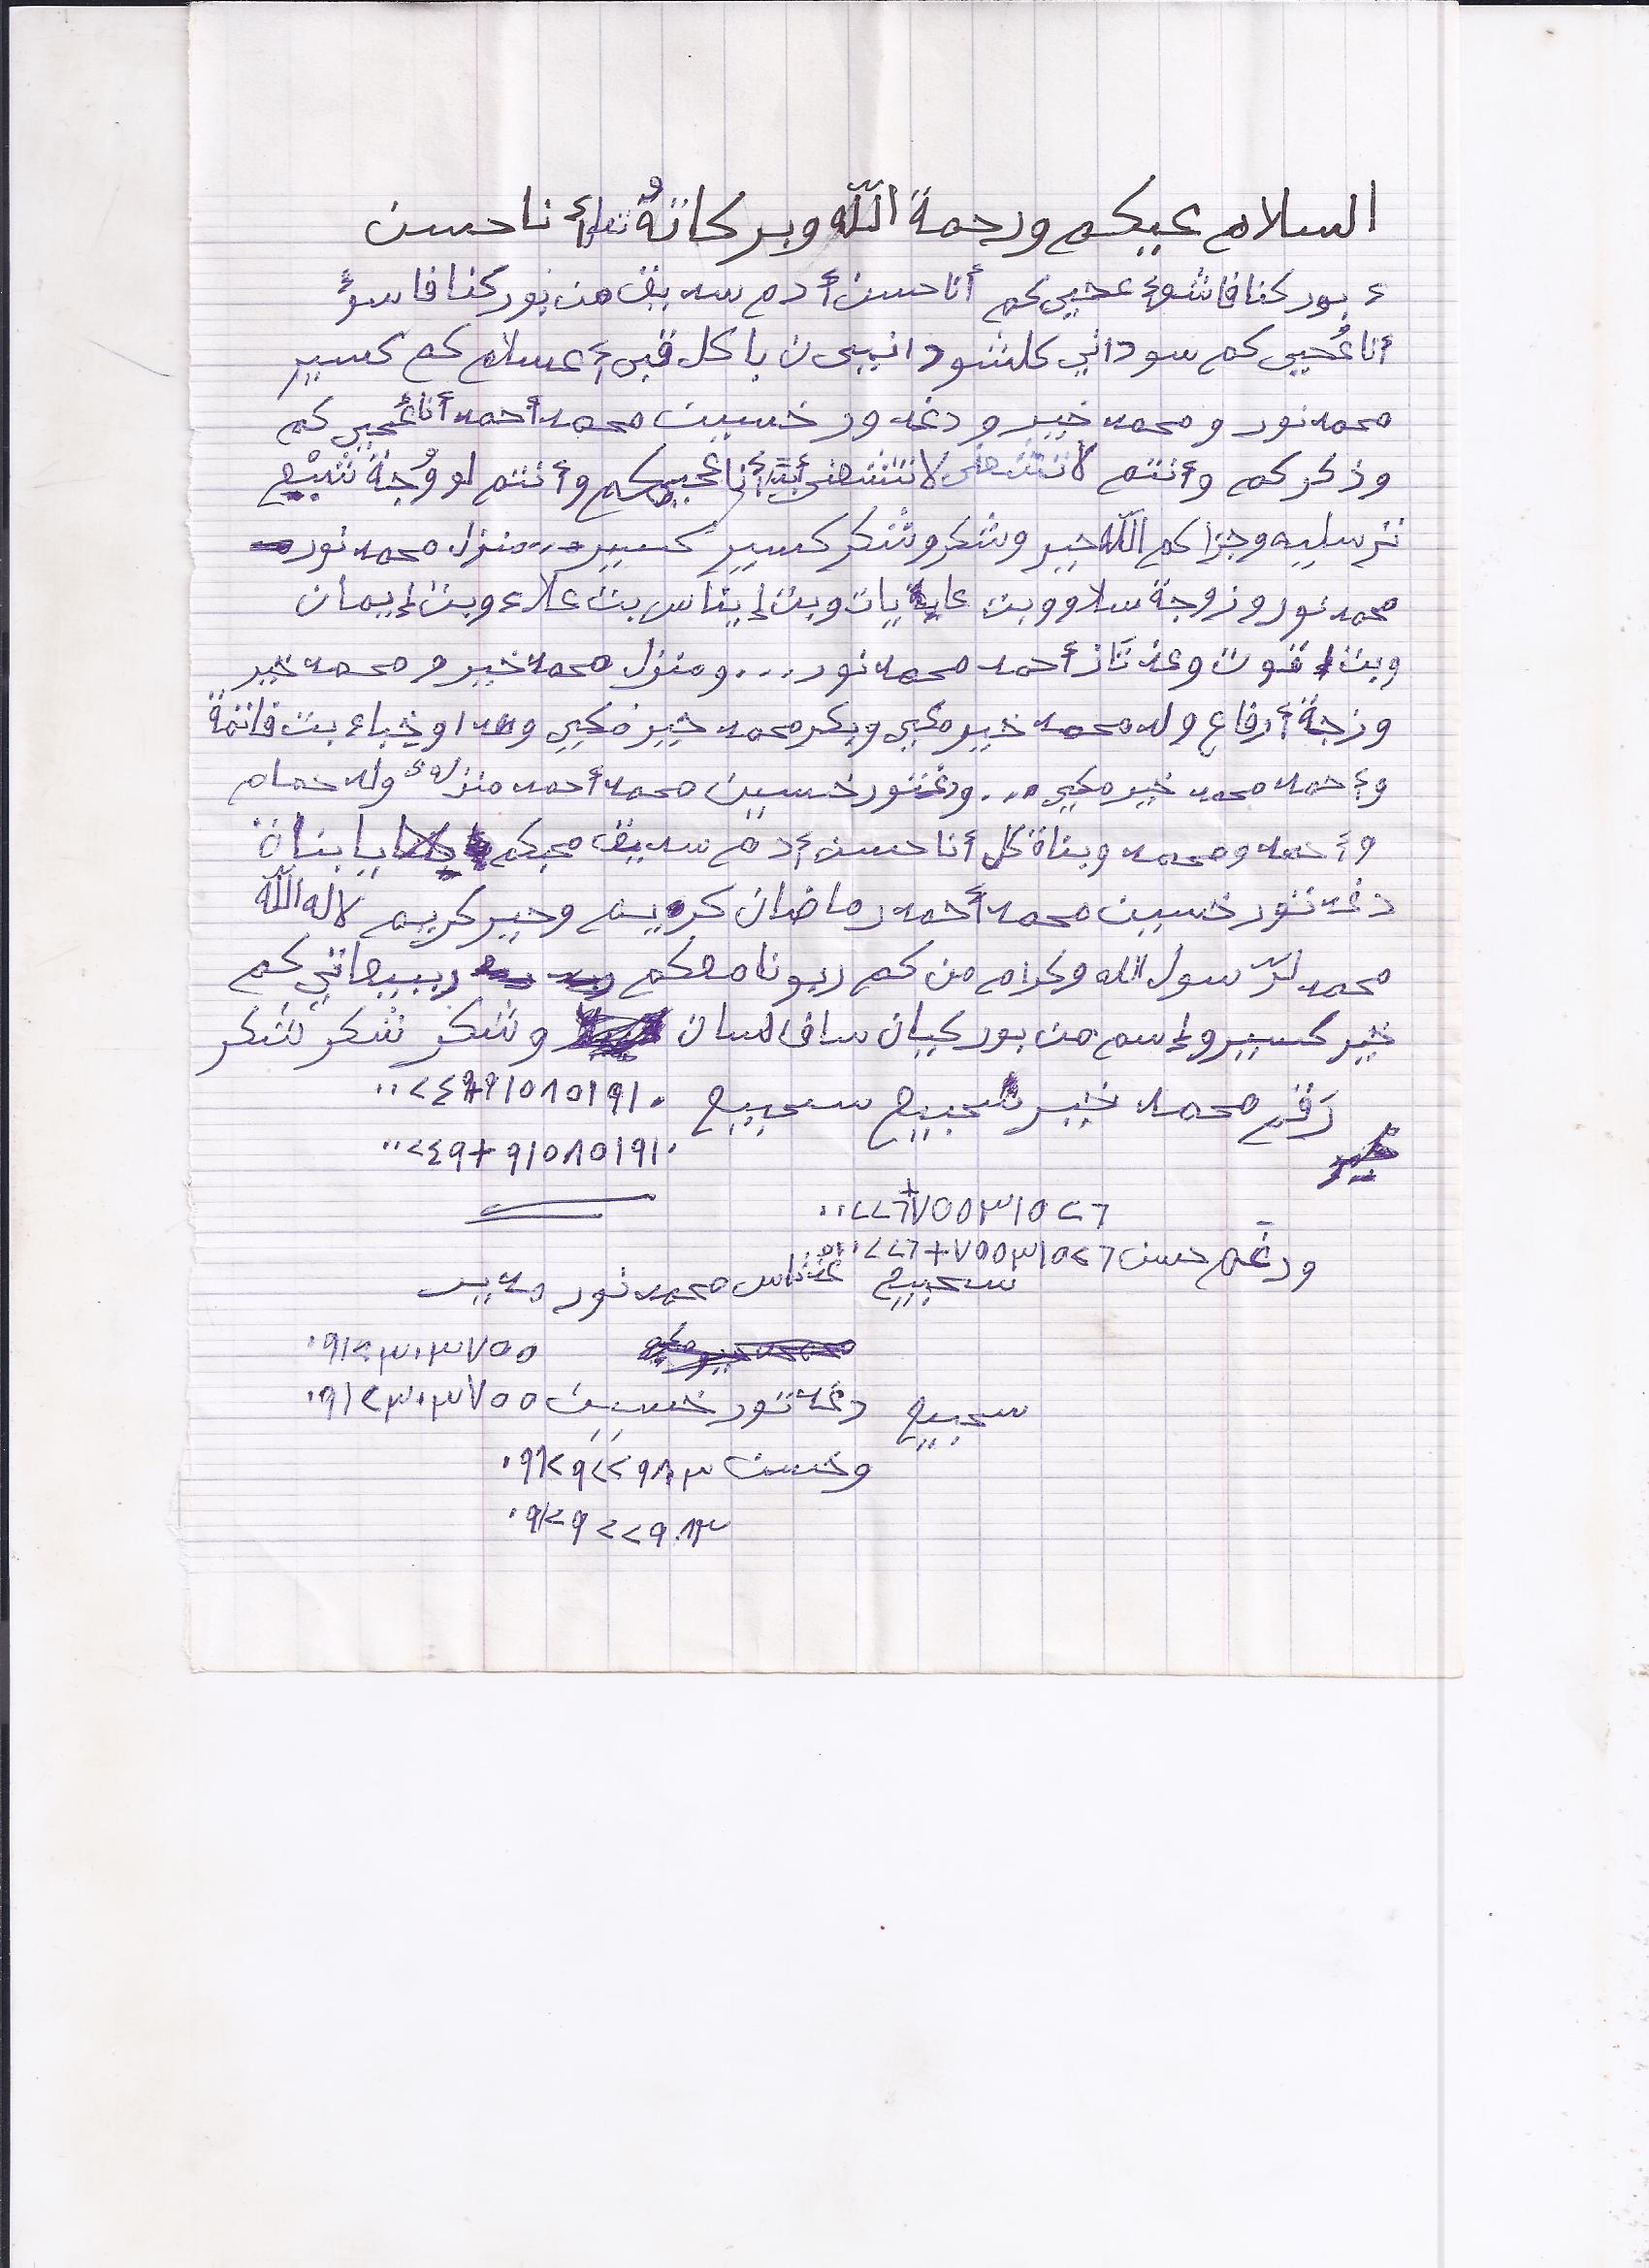 السلام عييكم ورحمة اللّه وبركاتةُ تعلى أنا حسن
ء بوركنا فاشوء عحيي كم أنا حسن أدم سديق من بوركنا فاسوء
أنا عُحيي كم سوداني كلشودانيين يا كل قبي أعسلام كم كسير
محمد نور و محمد خير و دغه ور خسيين محمد أحمد أنا عُحيي كم
وذكركم وأنتم لا تنشهنى لا تنشهنى أبدأ أنا عحييكم وأنتم لو وُجنة شيْيح
نرسليه وجزاكم اللّه خيير وشكر وشكر كسيير كسيير ... منزل محمد نور
محمد نور و زوجة سلاو وبت عايات وبت إيناس بت علاء وبت إيمان
وبت قوت وعد تاز أحمد محمد نور .... ومنزل محمد خيير و محمد خيير
وزجة أرفاع ولد محمد خيير مكيي وبكر محمد خيير مكيي و بت فاتمة
وءحمد محمد خيير مكيي ... ودغه نور خسيين محمد أحمد منزله ء ولد حمام
وأحمد ومحمد وبناة كل أنا حسن أدم سديق محبكم يا بناة
دغه نور خسيين محمد أحمد رماضان كرييم وخيير كريم لا اله اللّه
محمد لرّسول الله وكرام من كم ربونا معكم ربييهاتيي كم
خيير كسيير وإسم من بوركيان ساف لسان وشكر شكر شكر
رَقم محمد خيير سحبيح ٠٠٢٤٩٩١٥٨٥١٩١٠
٠٠٢٤٩+٩١٥٨٥١٩١٠
٠٠٢٢٦+٧٥٥٣١٥٢٦
ورغم حسن ٠٠٢٢٦+٧٥٥٣١٥٢٦
سحبيح عنداس محمد نور مديير
٠٩١٢٣٠٣٧٥٥
سحبيح دغه نور خسيين ٠٩١٢٣٠٣٧٥٥
وخسن ٠٩١٢٩٢٢٩٨٣
٠٩١٢٩٢٢٩٨٣